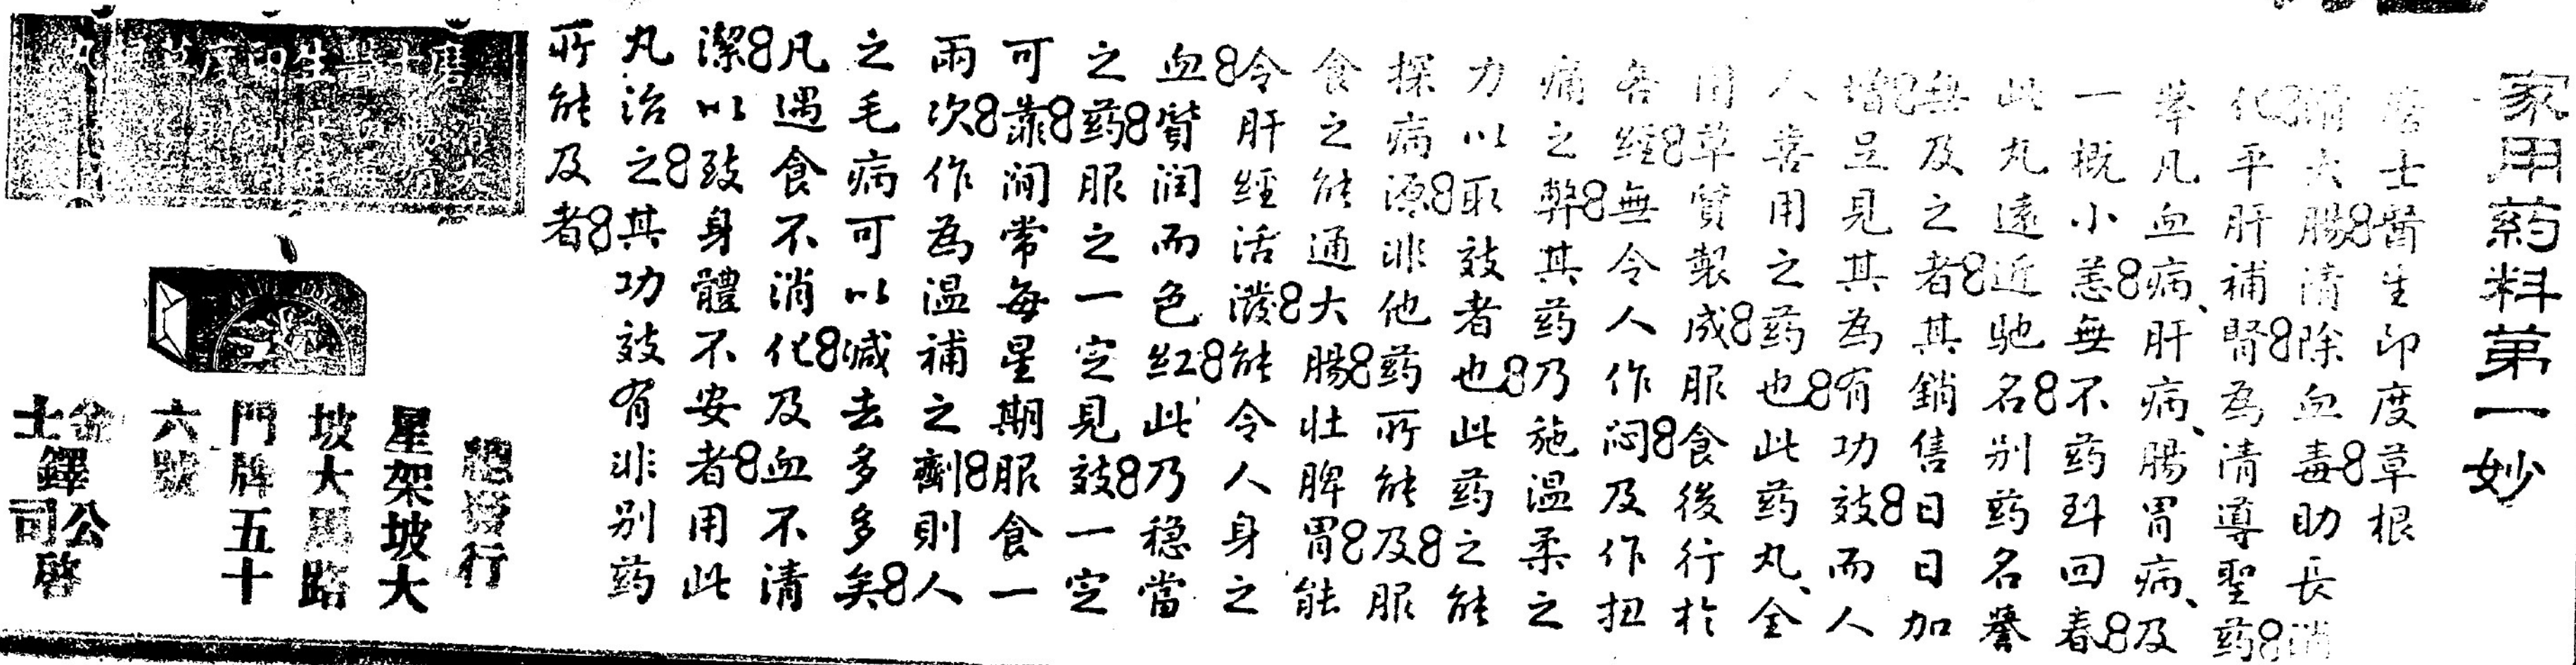 家用药料第一妙
醫士醫生印度草根
消大腸8清除血毒8助長消
化8平肝補腎8為清導聖药8
華凡血病、肝病、腸胃病、及
一概小恙8無不药到回春8
此丸遠近馳名8别药名譽
無及之者8其銷售日日加
增8足見其為有功效8而人
人喜用之药也8此药丸、全
用草質製成8服食後行於
各經8無令人作悶8及作扭
痛之弊8其药乃施温柔之
力以取效者也8此药之能
探病源8非他药所能及8服
食之能通大腸8壯脾胃8能
令肝經活潑8能令人身之
血8質潤而色红8此乃穏當
之药8服之一定見效8一定
可靠8间常每星期服食一
兩次8作為温補之劑8則人
之毛病可以减去多多矣8
凡遇食不消化8及血不清
潔8以致身體不安者8用此
丸治之8其功效有非别药
所能及者8
總發行
星架坡大
坡大馬路
門牌五十
六號
金鐸公
士司啓